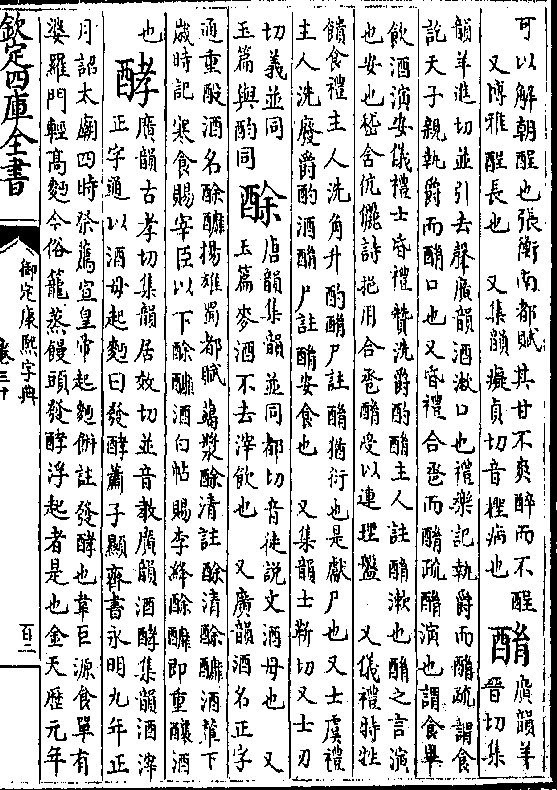 可以解朝酲也張衡南都賦其甘不爽醉而不酲
又博雅酲長也　又集韻癡貞切音檉病也　酳廣韻羊晉切集
韻羊進切並引去聲廣韻酒漱口也禮樂記執爵而酳疏謂食
訖天子親執爵而酳口也又昏禮合巹而酳疏酳演也謂食畢
飲酒演安儀禮士昏禮贊洗爵酌酳主人註酳漱也酳之言演
也安也嵇含伉儷詩挹用合巹酳受以連理盤　又儀禮特牲
饋食禮主人洗角升酌酳尸註酳猶衍也是獻尸也又士虞禮
主人洗廢爵酌酒酳尸註酳安食也　又集韻士靳切又士刃
切義並同　酴唐韻集韻並同都切音徒説文酒母也　又
玉篇與酌同　玉篇麥酒不去滓飲也　又廣韻酒名正字
通重釀酒名酴醾揚雄蜀都賦蘮漿酴清註酴清酴醾酒葷下
歲時記寒食賜宰臣以下酴醾酒白帖賜李絳酴醾即重釀酒
也　酵廣韻古孝切集韻居效切並音教廣韻酒酵集韻酒滓
正字通以酒母起麪曰發酵蕭子顯齊書永明九年正
月詔太廟四時祭薦宣皇帝起麪餅註發酵也韋巨源食單有
婆羅門輕高麪今俗籠蒸饅頭發酵浮起者是也金天歷元年
欽定四庫全書
御定康熙字典
卷三十